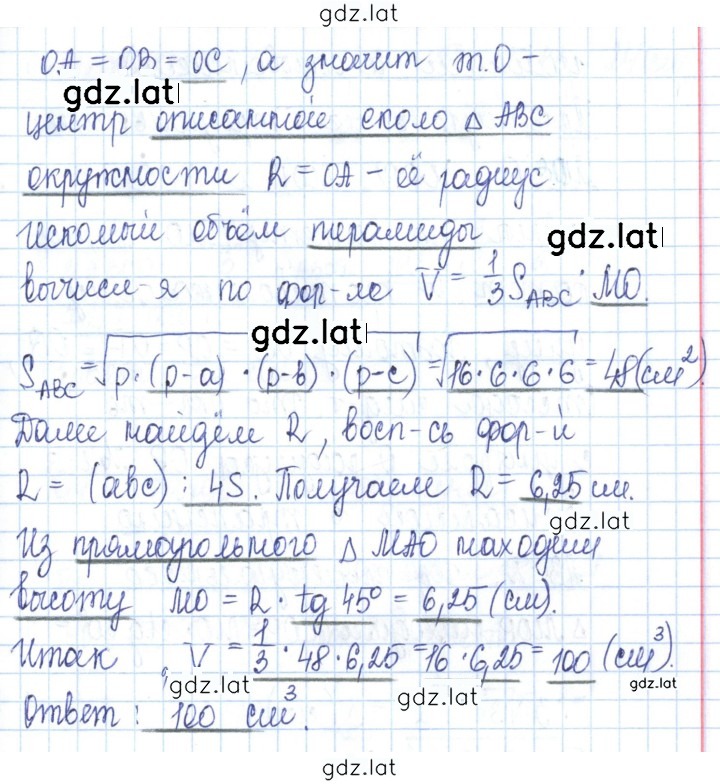 gdz.lat
OA = OB = OC, а значит т.О –
gdz.lat
центр описанной около Δ ABC
окружности R = OA – её радиус
Искомый объём пирамиды gdz.lat
вычисл-я по фор-ле V = 1/3 S_ABC · MO.
gdz.lat
S_ABC = √p·(p-a)·(p-b)·(p-c) = √16·6·6·6 = 48(см²).
Далее найдём R, восп-сь фор-й
R = (abc) : 4S. Получаем R = 6,25 см.
gdz.lat
Из прямоугольного Δ MAO находим
высоту MO = R · tg 45° = 6,25 (см).
Итак, V = 1/3 · 48 · 6,25 = 16 · 6,25 = 100 (см³).
gdz.lat gdz.lat gdz.lat
Ответ: 100 см³.
gdz.lat